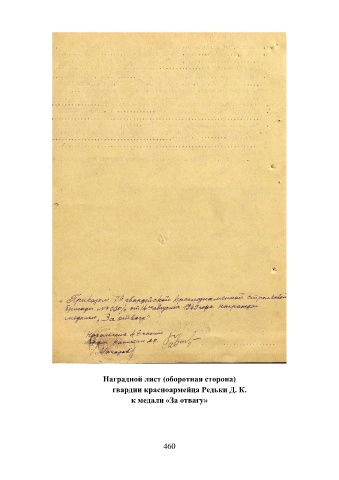 Приказом 7й гвардейской Краснознаменной стрелковой
бригады № 030/ от 26 августа 1943 года награжден
медалью „За отвагу“
Начальник 4
капитан
Наградной лист (оборотная сторона)
гвардии красноармейца Редьки Д. К.
к медали «За отвагу»
460